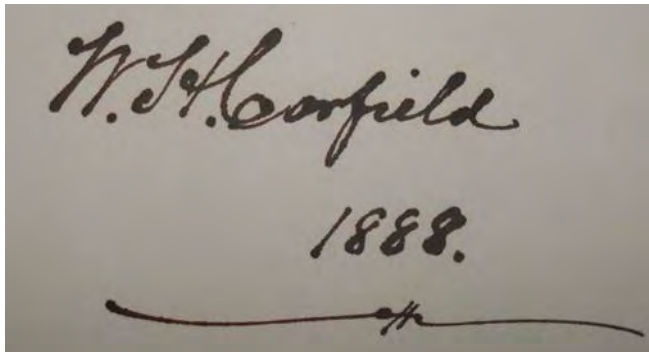 W. H. Corfield
1888.